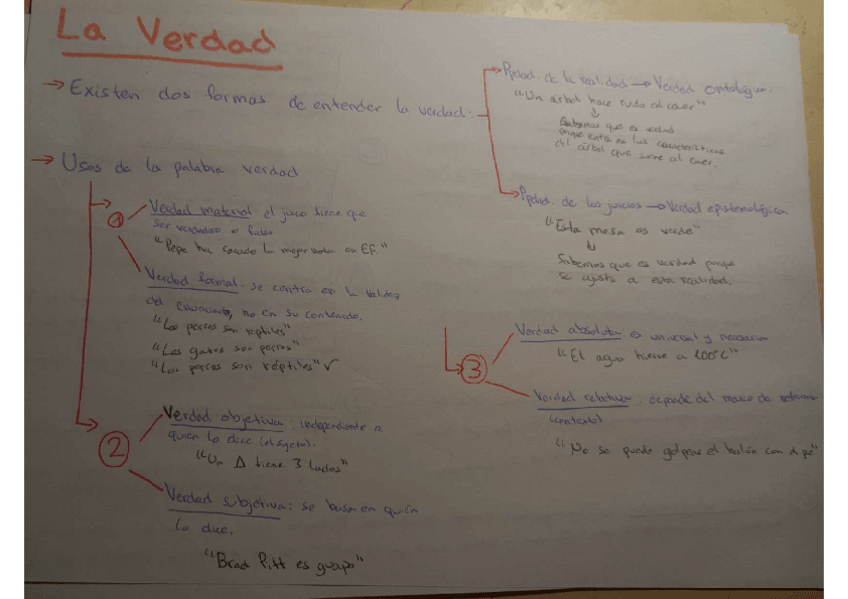 La Verdad
→ Existen dos formas de entender la verdad:
Ppdad. de la realidad → Verdad ontológica.
"Un árbol hace ruido al caer"
↓
Sabemos que es verdad
porque entra en las características
del árbol que suene al caer.
Ppdad. de los juicios → Verdad epistemológica
"Esta mesa es verde"
↓
Sabemos que es verdad porque
se ajusta a esta realidad.
→ Usos de la palabra verdad
1
Verdad material: el juicio tiene que
ser verdadero o falso
"Pepe ha sacado la mejor nota en EF."
Verdad formal: se centra en la validez
del enunciado, no en su contenido.
"Los perros son reptiles"
"Los gatos son perros"
"Los perros son réptiles" ✓
2
Verdad objetiva: independiente a
quien lo dice (el sujeto).
"Un Δ tiene 3 lados"
Verdad subjetiva: se basa en quién
lo dice.
"Brad Pitt es guapo"
3
Verdad absoluta: es universal y necesaria
"El agua hierve a 100°C"
Verdad relativa: depende del marco de referencia
(contexto)
"No se puede golpear el balón con el pie"